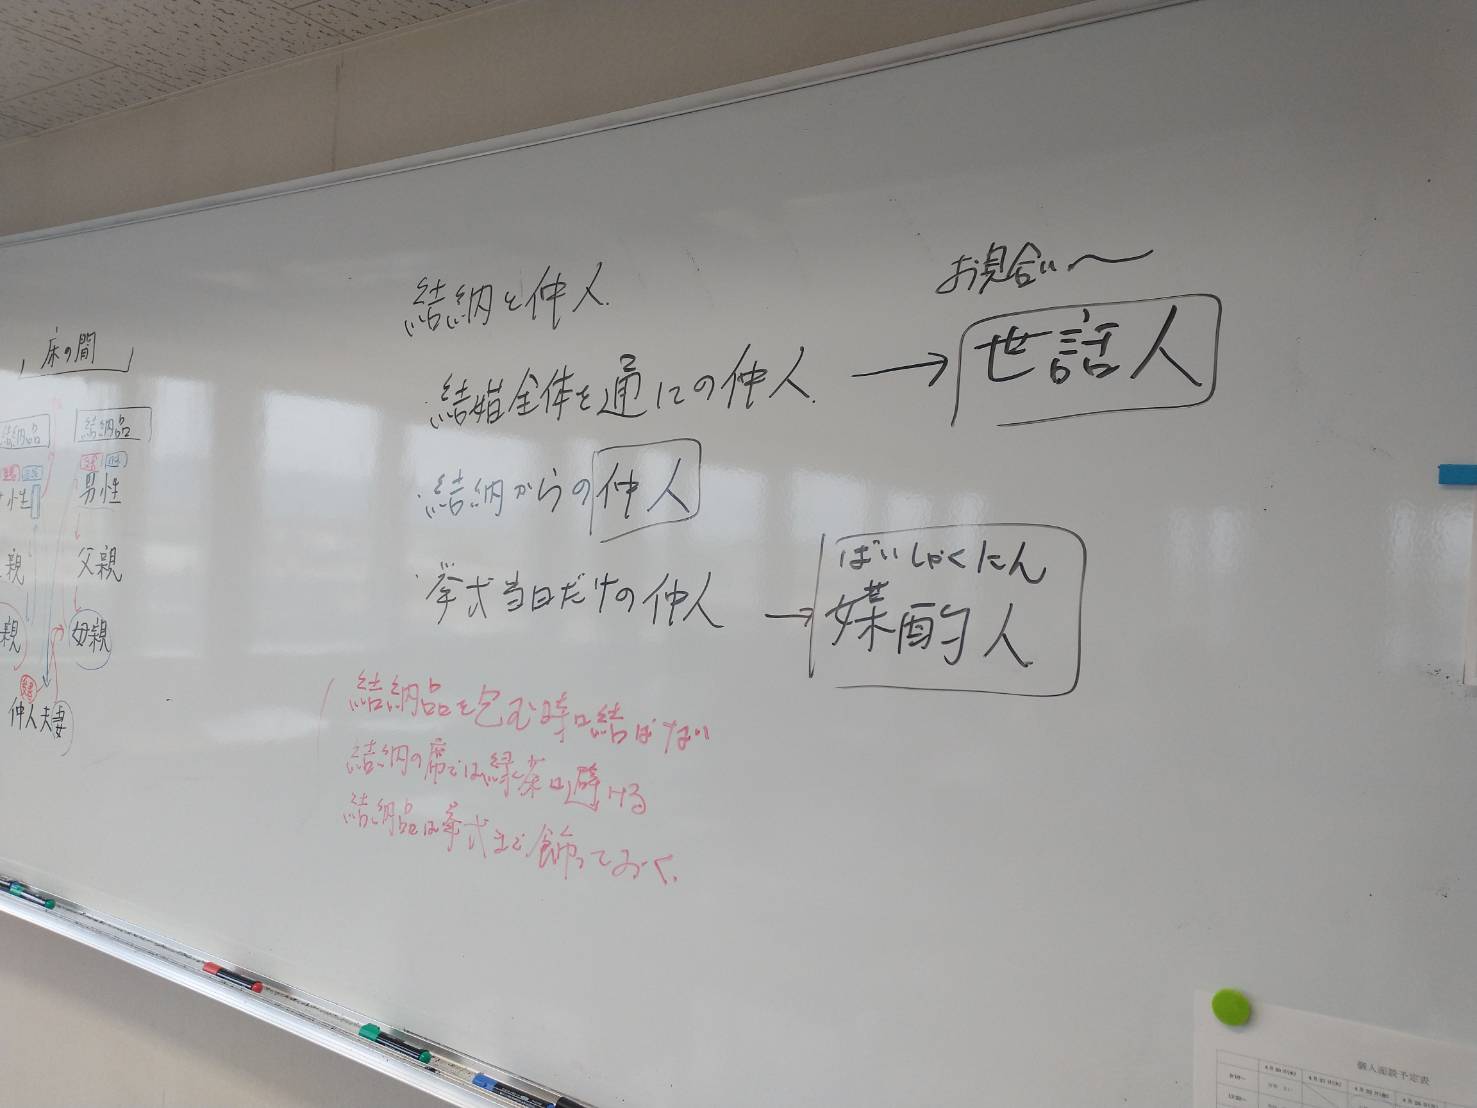 床の間
結納品
結納品
男性
性
父親
親
母親
親
仲人夫妻
結納と仲人.
・結婚全体を通しての仲人.
お見合い〜
→ 世話人
・結納からの仲人
・挙式当日だけの仲人
→ ばいしゃくにん
媒酌人
結納品を包む時は結ばない
結納の席では緑茶は避ける
結納品は挙式まで飾っておく.
個人面談予定表